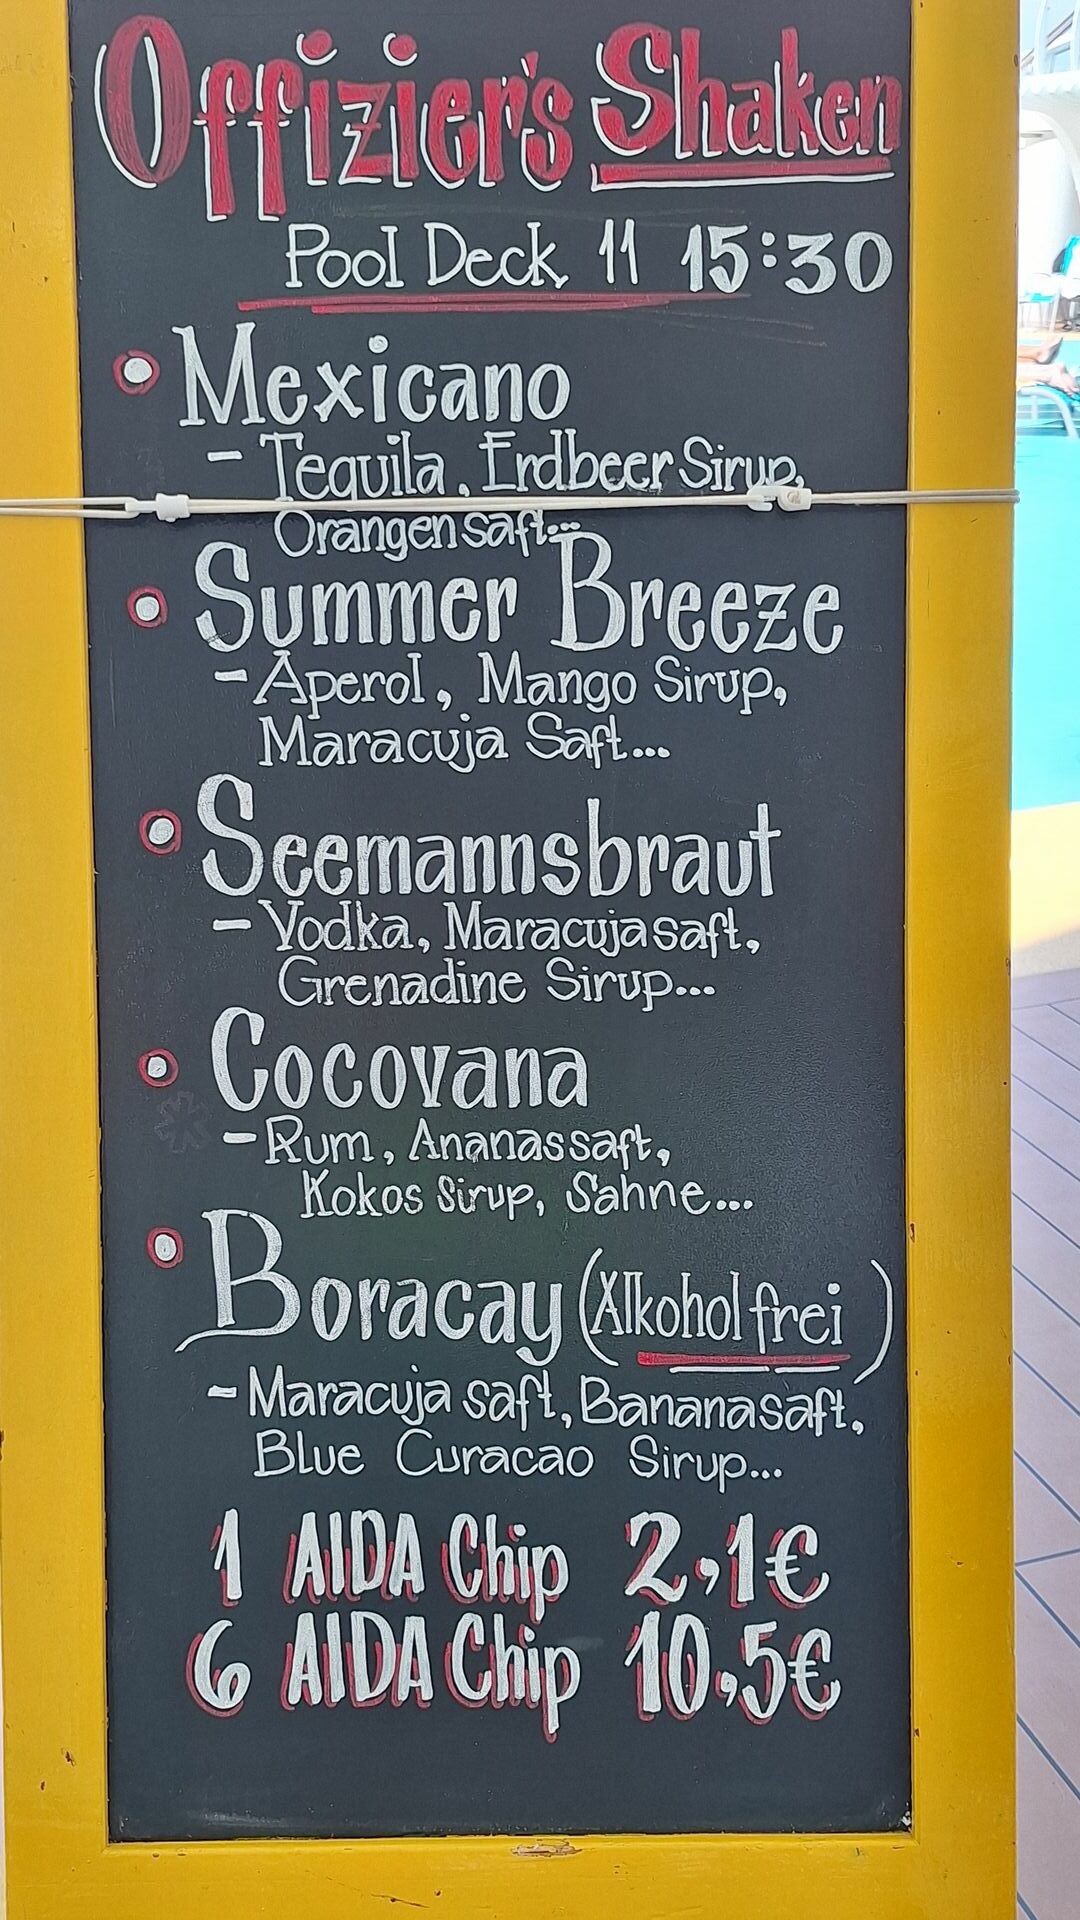 Offizier's Shaken
Pool Deck 11 15:30
Mexicano
- Tequila, Erdbeer Sirup,
Orangensaft...
Summer Breeze
- Aperol, Mango Sirup,
Maracuja Saft...
Seemannsbraut
- Vodka, Maracujasaft,
Grenadine Sirup...
Cocovana
- Rum, Ananassaft,
Kokos Sirup, Sahne...
Boracay (Alkohol frei)
- Maracuja saft, Bananasaft,
Blue Curacao Sirup...
1 AIDA Chip 2,1€
6 AIDA Chip 10,5€